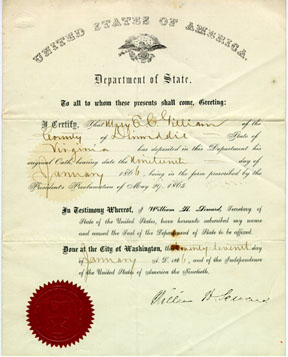 UNITED STATES OF AMERICA.
Department of State.
To all to whom these presents shall come, Greeting:
I Certify, That Mary E. C. Gilliam of the
County of Dinwiddie State of
Virginia has deposited in this Department his
original Oath, bearing date the Nineteenth day of
January 1866, being in the form prescribed by the
President's Proclamation of May 29, 1865.
In Testimony Whereof, I William H. Seward, Secretary of
State of the United States, have hereunto subscribed my name
and caused the Seal of the Department of State to be affixed.
Done at the City of Washington, this twenty seventh day
of January A.D. 1866, and of the Independence
of the United States of America the Ninetieth.
William H. Seward